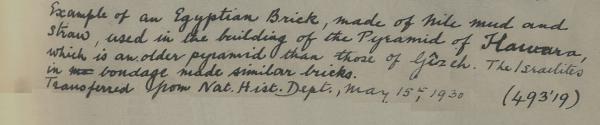 Example of an Egyptian Brick, made of Nile mud and
straw, used in the building of the Pyramid of Hawara,
which is an older pyramid than those of Gîzeh. The Israelites
in bondage made similar bricks.
Transferred from Nat. Hist. Dept., May 15th, 1930 (493'19)